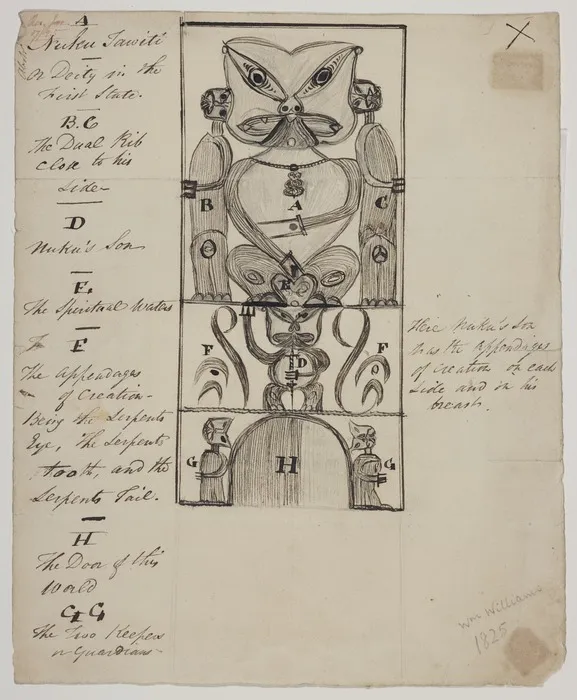 A
Nuku Tawiti
or Deity in the
First State.
B.C
The Dual Rib
Close to his
Side
D
Nuku's Son
E.
The Spiritual Waters
F
The Appendages
of Creation-
Being the Serpents
Eye, The Serpents
tooth, and the
Serpents Tail.
H
The Door of this
World
G G
The Two Keepers
or Guardians
B
A
C
E
F
D
F
G
H
G
Here Nuku's Son
has the Appendages
of Creation on each
Side and on his
breast.
Wm Williams
1825